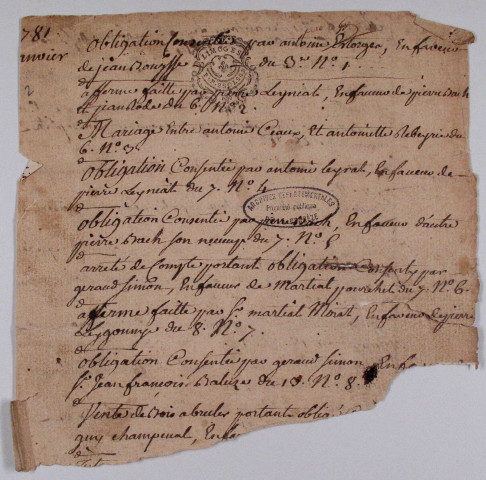 1781
Janvier
obligation Consentie par antoine Estorges, En faveur
de jean du 3 N.º 1.
afferme faitte par Leyniat, En faveur de pierre Bach
et jean du 6. N.º 2.
Mariage Entre antoine Ceaux, Et antoinette du
6. N.º 3.
obligation Consentie par antoine Leyrat, En faveur de
pierre Leyniat du 7. N.º 4.
obligation Consentie par pierre Bach, En faveur d'autre
pierre Bach son neveux du 7. N.º 5
arrete de Compte portant obligation Consentie par
geraud Simon, En faveur de Martial du 7. N.º 6.
afferme faitte par S.r martial Minat, En faveur de pierre
Leygonnye du 8. N.º 7.
obligation Consentie par geraud Simon, En fa
S.r Jean françois Baluze du 18. N.º 8.
Vente de Bois a bruler portant oblig
guy champeval, En fa
ARCHIVES DEPARTEMENTALES
Propriété publique
CORREZE